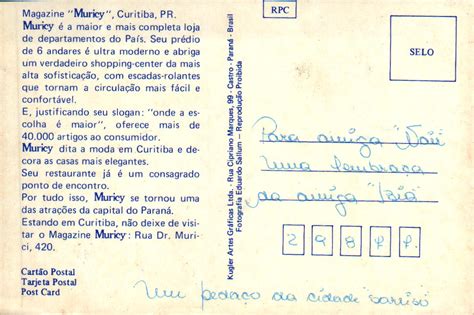 Magazine "Muricy", Curitiba, PR.
Muricy é a maior e mais completa loja
de departamentos do País. Seu prédio
de 6 andares é ultra moderno e abriga
um verdadeiro shopping-center da mais
alta sofisticação, com escadas-rolantes
que tornam a circulação mais fácil e
confortável.
E, justificando seu slogan: "onde a es-
colha é maior", oferece mais de
40.000 artigos ao consumidor.
Muricy dita a moda em Curitiba e de-
cora as casas mais elegantes.
Seu restaurante já é um consagrado
ponto de encontro.
Por tudo isso, Muricy se tornou uma
das atrações da capital do Paraná.
Estando em Curitiba, não deixe de visi-
tar o Magazine Muricy: Rua Dr. Muri-
ci, 420.
Cartão Postal
Tarjeta Postal
Post Card
Kugler Artes Gráficas Ltda. - Rua Cipriano Marques, 99 - Castro - Paraná - Brasil
Fotografia Eduardo Sallum – Reprodução Proibida
RPC
SELO
Para amiga
Uma lembraça
da amiga "Bia"
2 9 8 7 7
Um pedaço da cidade "sorriso"